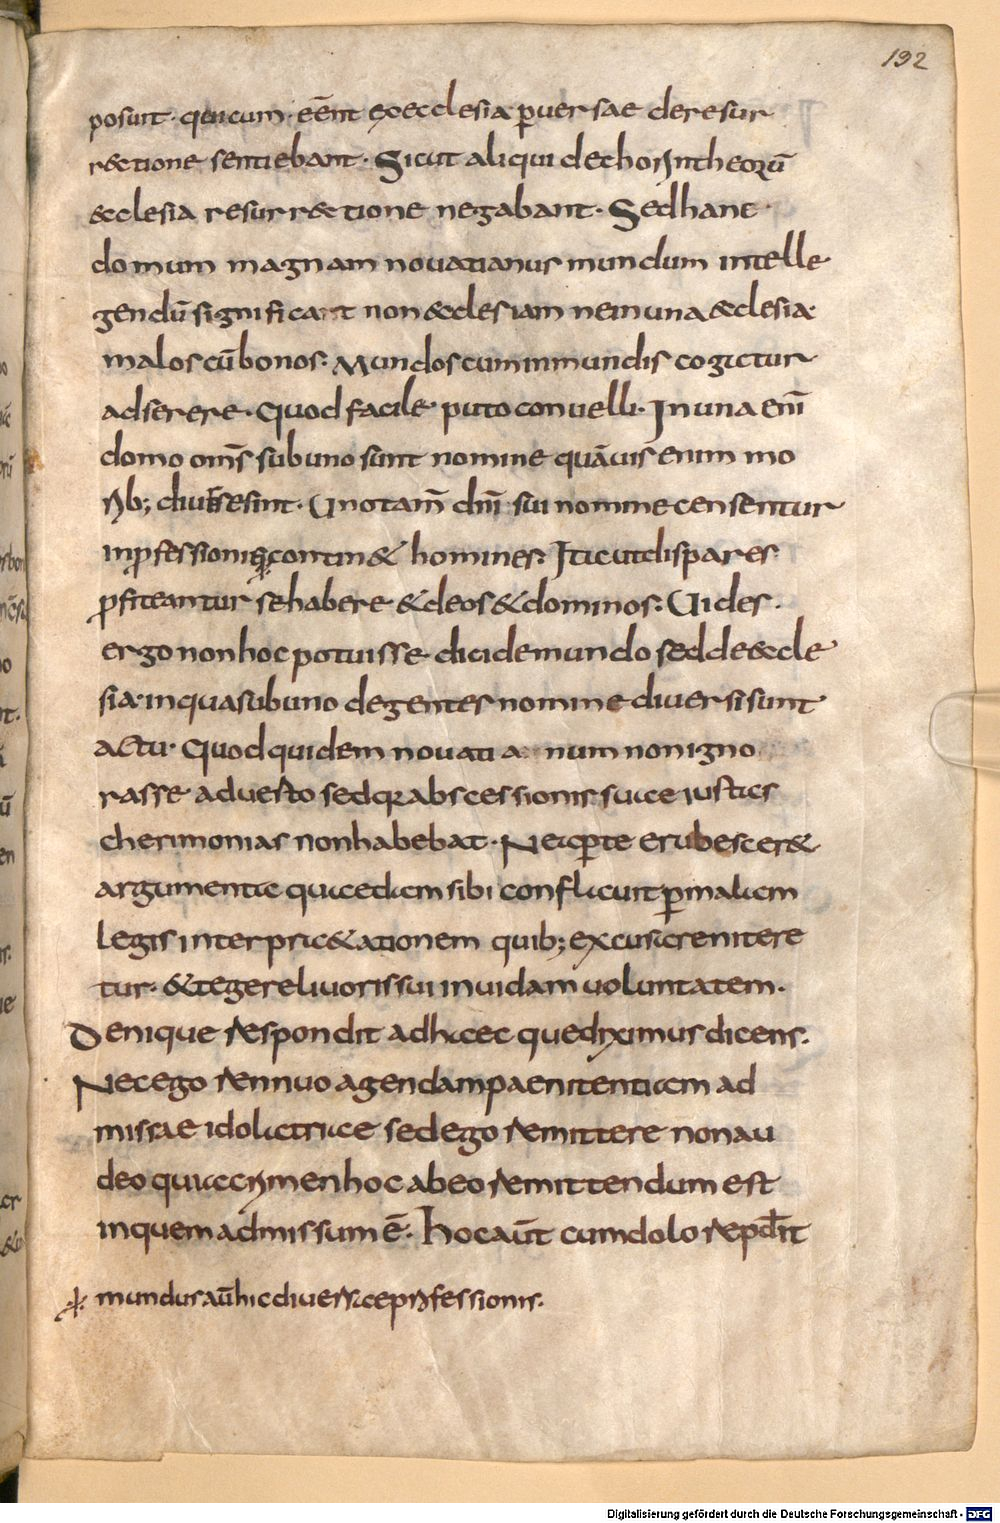 192
posuit · qui cum · eēnt execclesia puersae deresur
r&tione sentiebant · Sicut aliqui dechorintheorū
&clesia resurr&tione negabant · Sedhanc
domum magnam nouatianus mundum intelle
gendū significat non &clesiam nem una &clesia
malos cū bonos : Mundos cum inmundis cogetur
adserere · Quod facile puto conuelli · In una enī
domo om̄s sub uno sunt nomine quāuis enim mo
rib; diuersesint · Uno tam̄ dn̄i sui nomine censentur
in pfessionis contin& homines : Ita ut dispares
pfiteantur sehabere &deos &dominos : Uides ·
ergo non hoc potuisse dici demundo sed de &cle
sia · inqua sub uno degentes nomine diuersi sunt
actu · Quod quidem nouatianum non igno
rasse aduerto sed qr abscessionis suae iustas
cherimonias non habebat · Ne aperte erubescer&
argumenta quaedam sibi conflauit p malam
legis interpr&ationem quib; excusare nitere
tur · &tegere liuoris sui inuidam uoluntatem ·
Denique respondit adhaec que diximus dicens ·
Nec ego rennuo agendam paenitentiam ad
missae idolatriae sed ego remittere non au
deo quia crimen hoc abeo remittendum est
inquem admissum ē · hoc aūt cum dolo repdit
mundus aū hic diuersae professionis ·
Digitalisierung gefördert durch die Deutsche Forschungsgemeinschaft - DFG